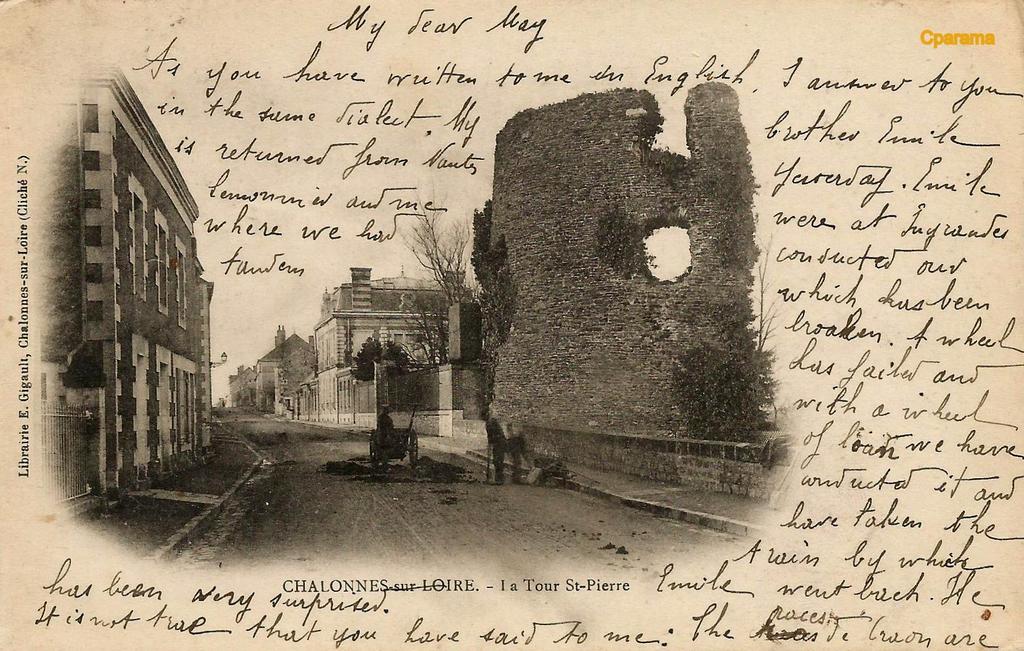 Cparama
My dear May
As you have written to me in English, I answer to you
in the same dialect. My brother Emile
is returned from Nantes yesterday. Emile
Lemonnier and me were at Ingrandes
where we had conducted our
tandem which has been
broaken. A wheel
has failed and
with a wheel
of loan we have
conducted it and
have taken the
train by which
Emile went back. He
has been very surprised.
It is not true that you have said to me: The races de Craon are
CHALONNES-sur-LOIRE. - La Tour St-Pierre
Librairie E. Gigault, Chalonnes-sur-Loire (Cliché N.)